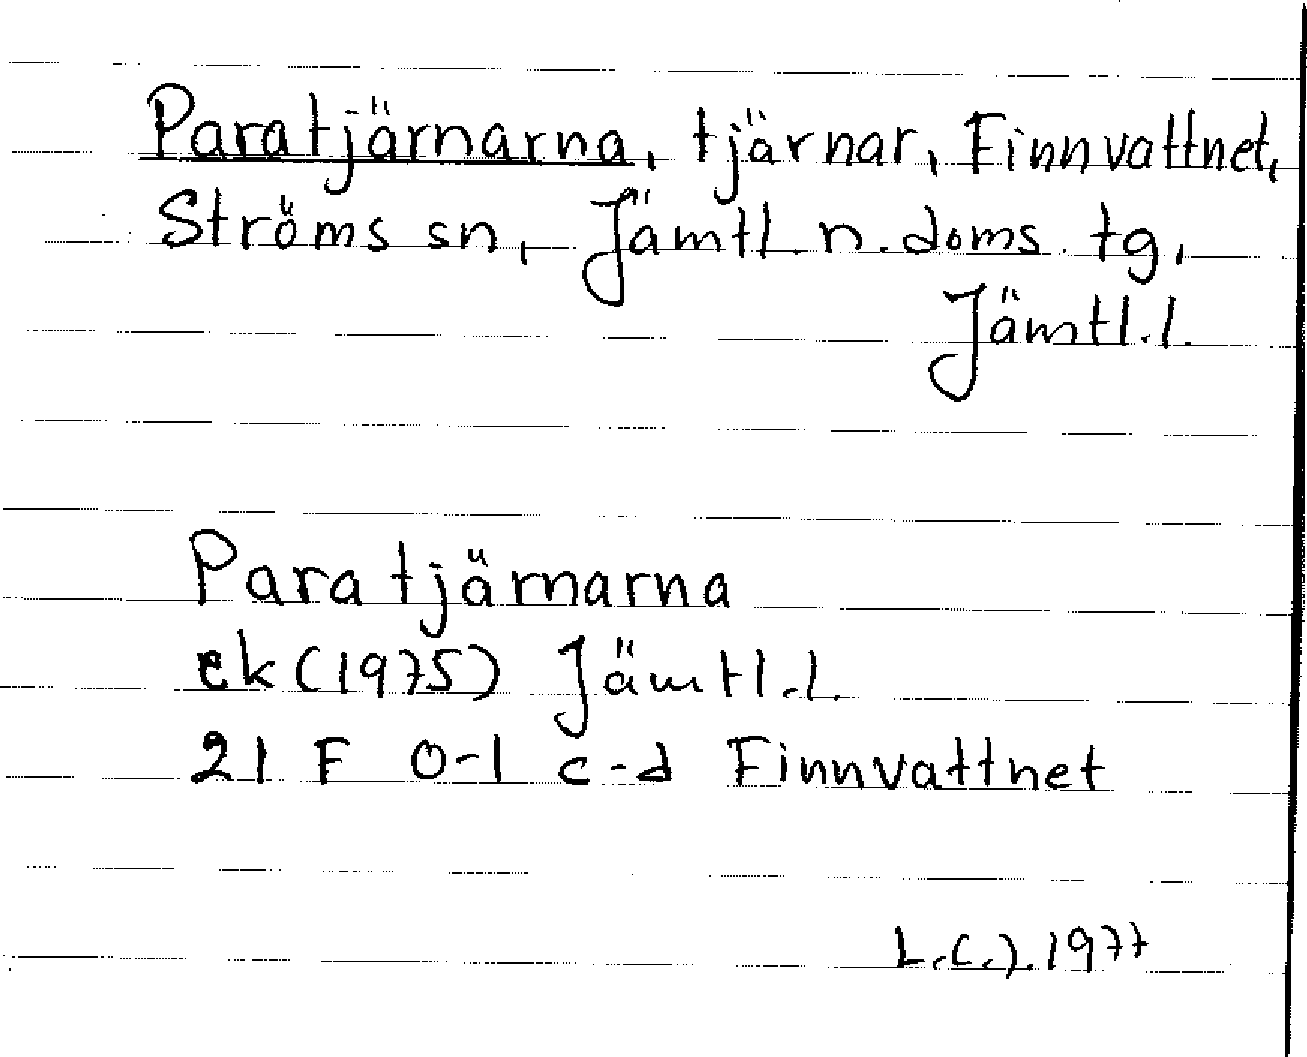 Paratjärnarna, tjärnar, Finnvattnet,
Ströms sn, Jämtl. n. doms. tg,
Jämtl.l.
Paratjärnarna
ek (1975) Jämtl.l.
21 F 0-1 c-d Finnvattnet
1977